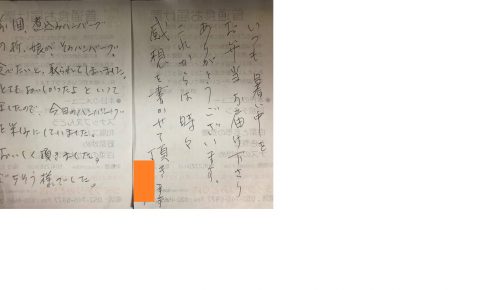 いつも暑い中を
お弁当お届け下さり
ありがとうございます。
これからは時々
感想を書かせて頂きま
回、煮込みハンバーグ
の折、娘が、そのハンバーグ
べたいと、取られてしまいました。
とてもおいしかったよといって
ましたので、今日のハンバーグ
を楽しみにしていました。
おいしく頂きました。
ごちそう様でした。